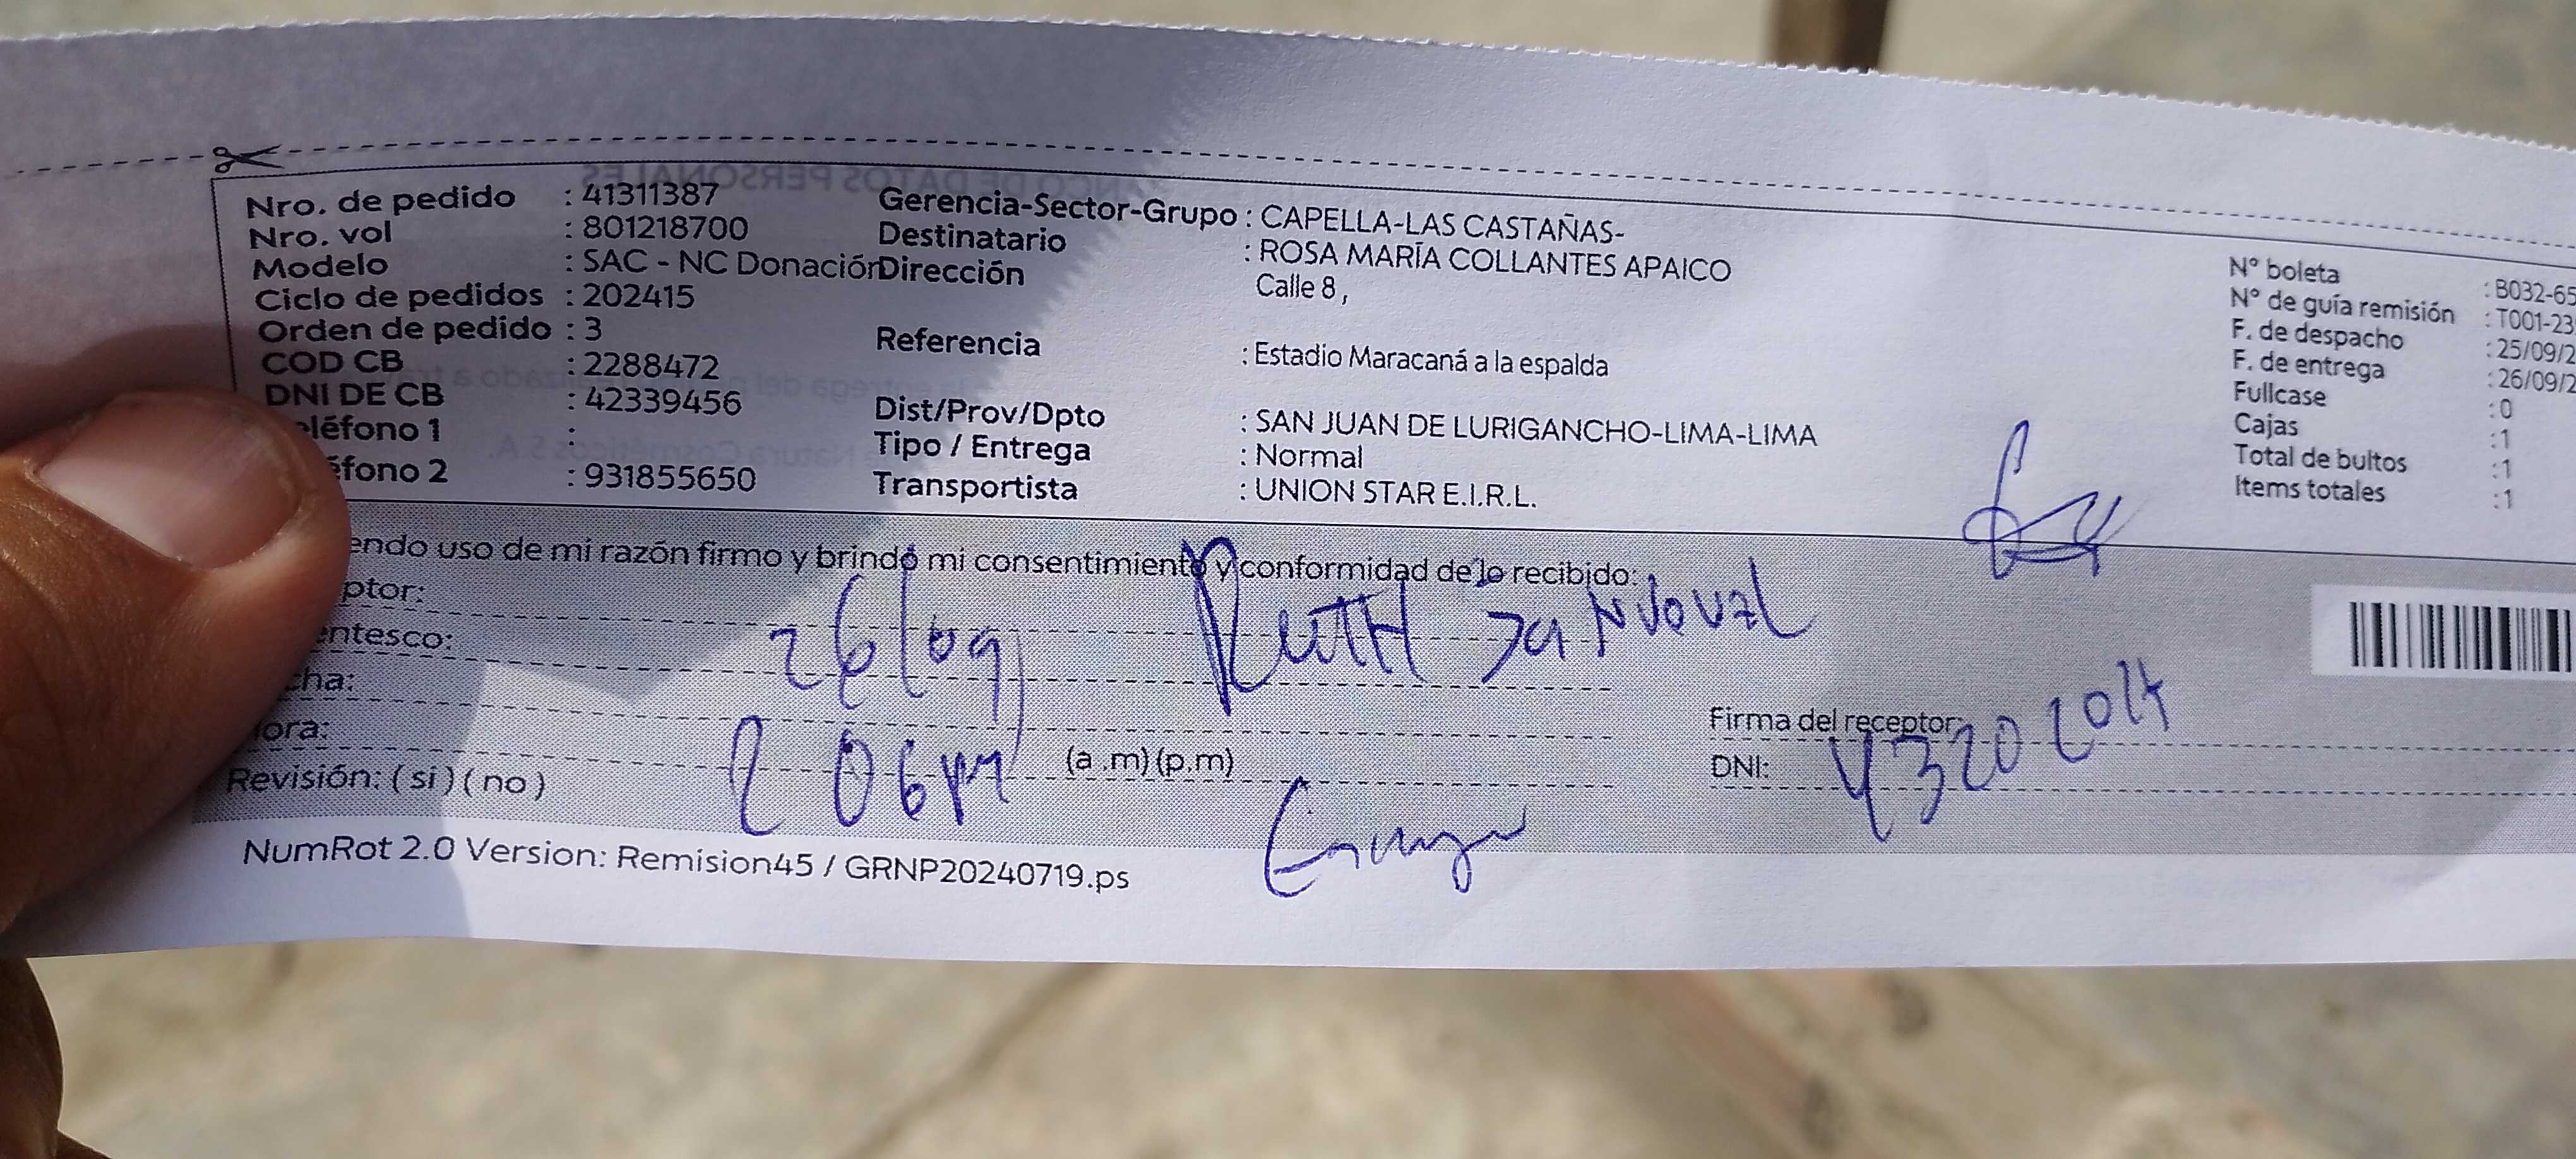 Nro. de pedido : 41311387
Nro. vol : 801218700
Modelo : SAC - NC Donación
Ciclo de pedidos : 202415
Orden de pedido : 3
COD CB : 2288472
DNI DE CB : 42339456
eléfono 1 :
éfono 2 : 931855650
Gerencia-Sector-Grupo : CAPELLA-LAS CASTAÑAS-
Destinatario : ROSA MARÍA COLLANTES APAICO
Dirección Calle 8 ,
Referencia : Estadio Maracaná a la espalda
Dist/Prov/Dpto : SAN JUAN DE LURIGANCHO-LIMA-LIMA
Tipo / Entrega : Normal
Transportista : UNION STAR E.I.R.L.
N° boleta : B032-65
N° de guía remisión : T001-23
F. de despacho : 25/09/2
F. de entrega : 26/09/2
Fullcase : 0
Cajas : 1
Total de bultos : 1
Items totales : 1
endo uso de mi razón firmo y brindo mi consentimiento y conformidad de lo recibido:
ptor: 26/09 RUTH Sandoval
entesco:
cha:
ora: 2 06 pm (a .m) (p.m)
Revisión: ( si ) ( no )
Firma del receptor:
DNI:
NumRot 2.0 Version: Remision45 / GRNP20240719.ps